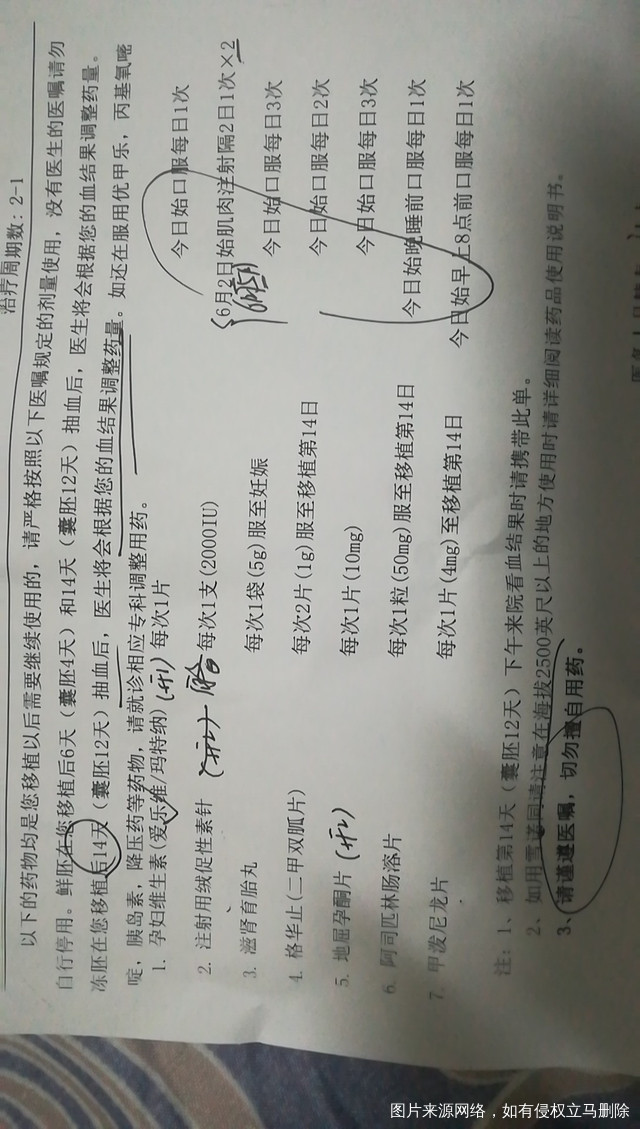 治疗周期数: 2-1
以下的药物均是您移植以后需要继续使用的，请严格按照以下医嘱规定的剂量使用，没有医生的医嘱请勿
自行停用。鲜胚在您移植后6天（囊胚4天）和14天（囊胚12天）抽血后，医生将会根据您的血结果调整药量。
冻胚在您移植后14天（囊胚12天）抽血后，医生将会根据您的血结果调整药量。如还在服用优甲乐，丙基氧嘧
啶，胰岛素，降压药等药物，请就诊相应专科调整用药。
1. 孕妇维生素(爱乐维/玛特纳) 每次1片 今日始口服每日1次
2. 注射用绒促性素针 每次1支(2000IU) 6月2日始肌肉注射隔2日1次×2
3. 滋肾育胎丸 每次1袋(5g)服至妊娠 今日始口服每日3次
4. 格华止(二甲双胍片) 每次2片(1g)服至移植第14日 今日始口服每日2次
5. 地屈孕酮片 每次1片(10mg) 今日始口服每日3次
6. 阿司匹林肠溶片 每次1粒(50mg)服至移植第14日 今日始晚睡前口服每日1次
7. 甲泼尼龙片 每次1片(4mg)至移植第14日 今日始早上8点前口服每日1次
注: 1、移植第14天（囊胚12天）下午来院看血结果时请携带此单。
2、如用雪诺同请注意在海拔2500英尺以上的地方使用时请详细阅读药品使用说明书。
3、请谨遵医嘱，切勿擅自用药。
图片来源网络，如有侵权立马删除